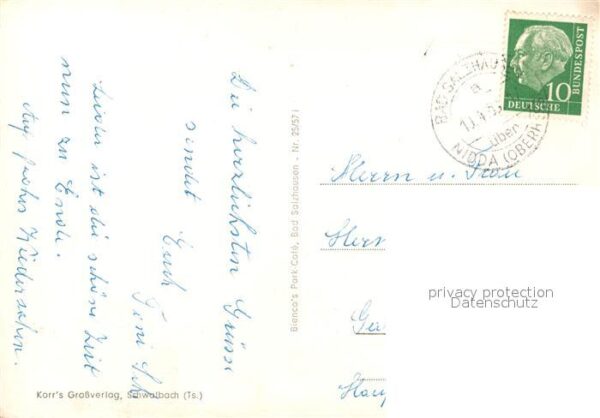 Die herzlichsten Grüsse
sendet
Euch
Leider ist die schöne Zeit
nun zu Ende.
Auf frohes Wiedersehen.
Bienco's Park-Café, Bad Salzhausen - Nr. 25/571
Korr's Großverlag, Schwalbach (Ts.)
DEUTSCHE
BUNDESPOST
10
BAD SALZHAU
a
über
NIDDA (OBERH
Herrn u. Frau
privacy protection
Datenschutz